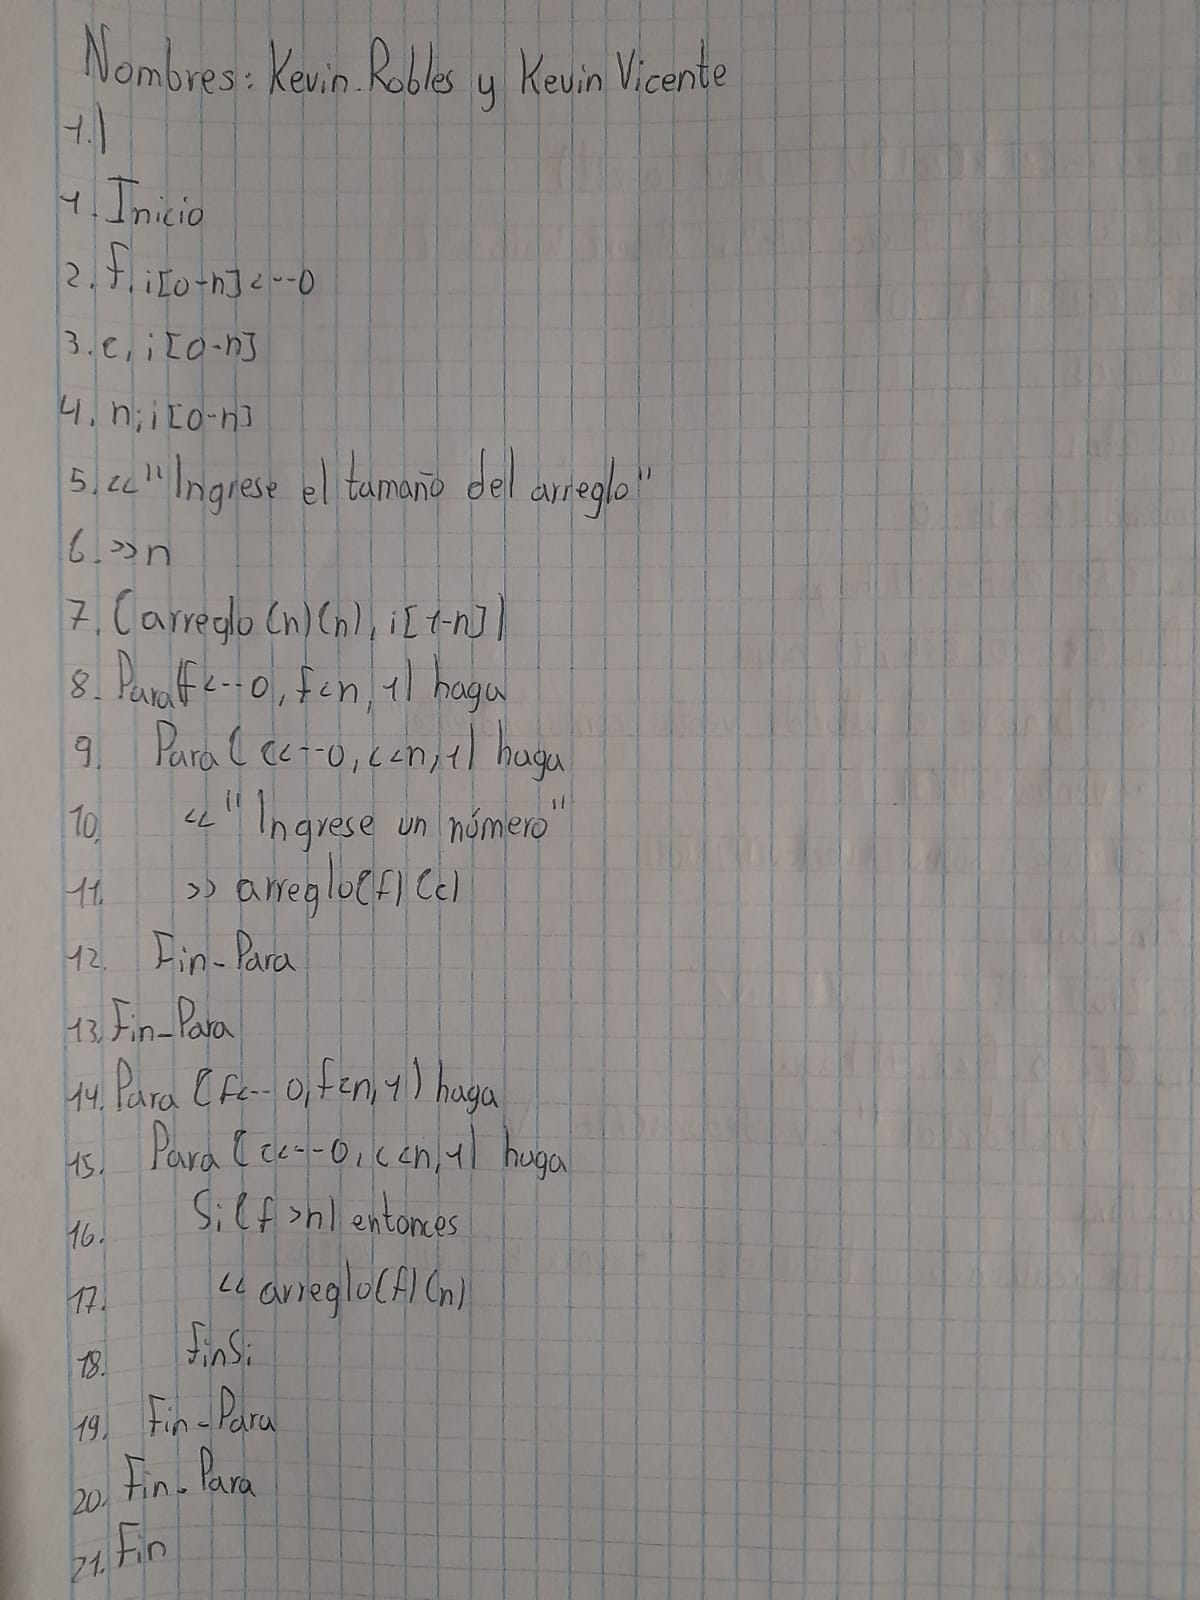 Nombres: Kevin Robles y Kevin Vicente
1.)
1. Inicio
2. f, i[0-n]<--0
3. c, i[0-n]
4. n, i[0-n]
5. <<"Ingrese el tamaño del arreglo"
6. >>n
7. (arreglo(n)(n), i[1-n])
8. Para(f<--0, f<n, 1) haga
9. Para (c<--0, c<n, 1) haga
10. <<"Ingrese un número"
11. >> arreglo(f)(c)
12. Fin-Para
13. Fin-Para
14. Para (f<--0, f<n, 1) haga
15. Para (c<--0, c<n, 1) haga
16. Si(f>n) entonces
17. << arreglo(f)(n)
18. FinSi
19. Fin-Para
20. Fin-Para
21. Fin